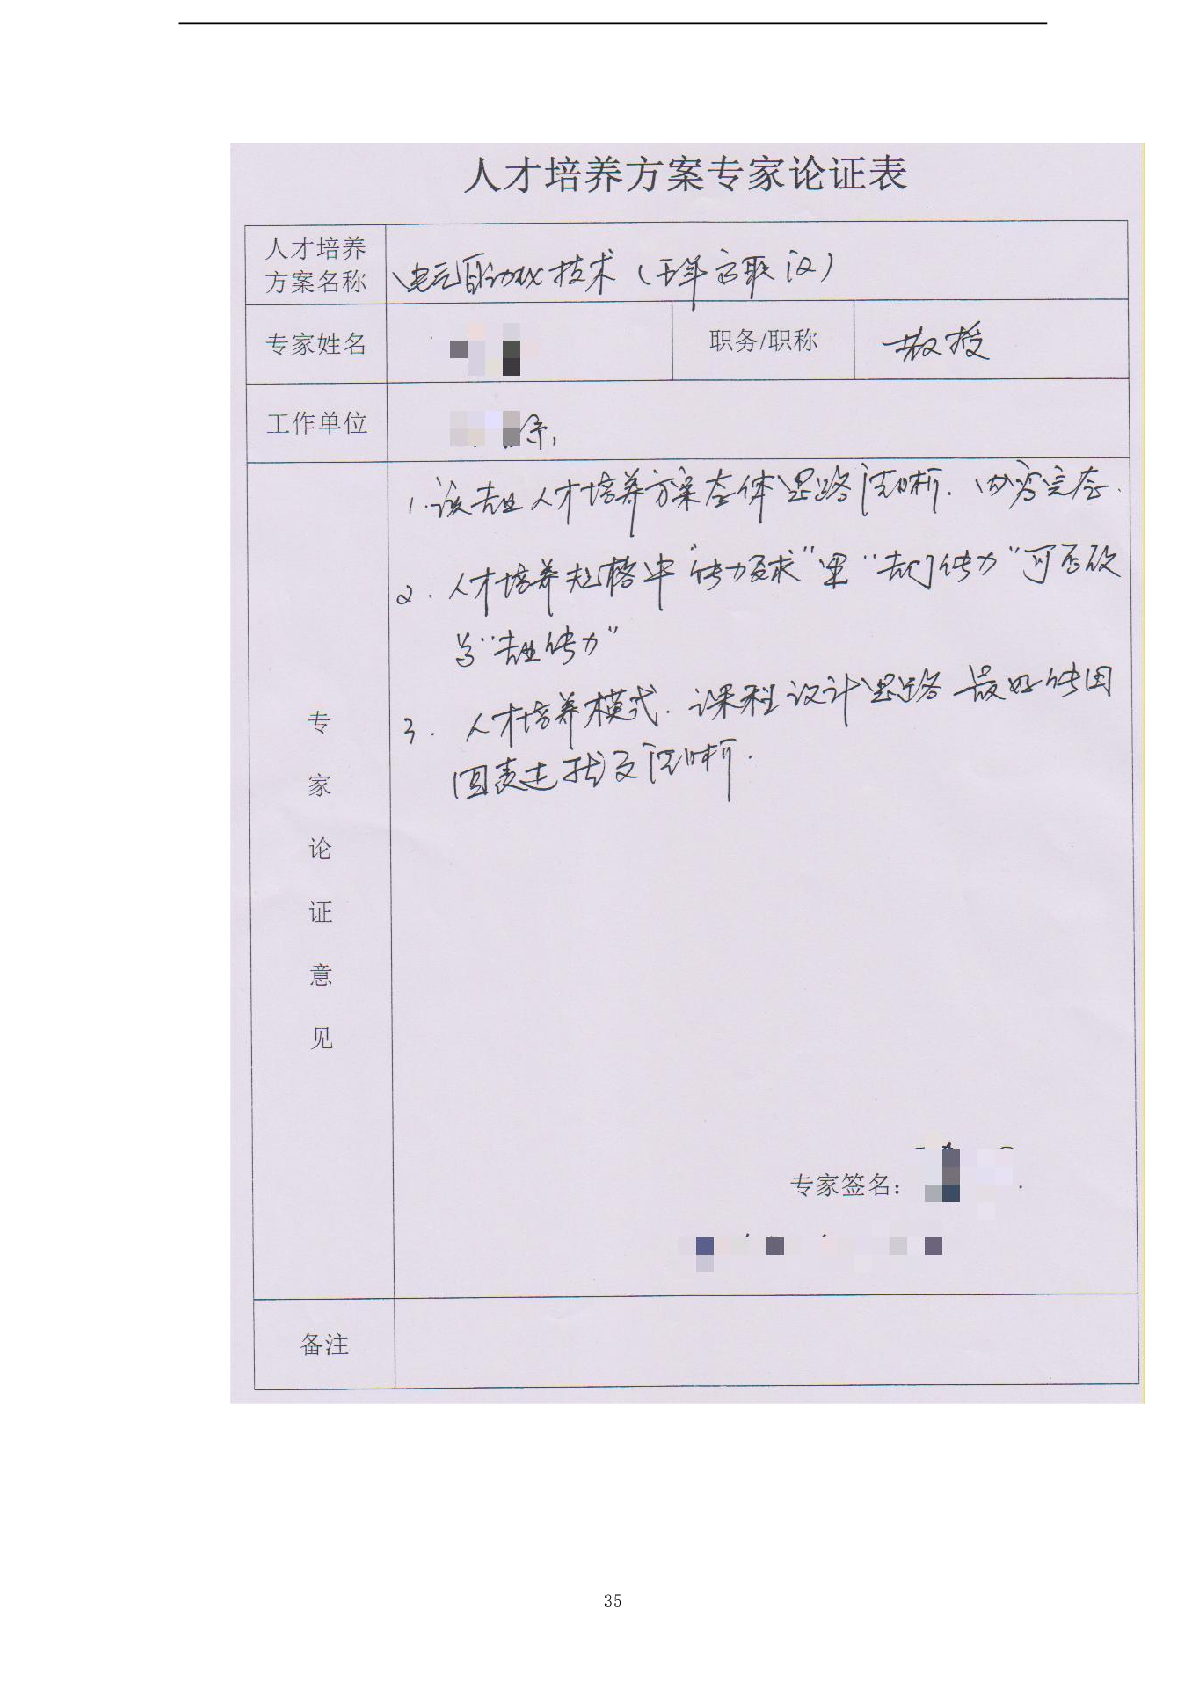 人才培养方案专家论证表
人才培养
方案名称
电气自动化技术（五年高职）
专家姓名
职务/职称
教授
工作单位
系
1.该专业人才培养方案整体思路清晰.内容完整.
2.人才培养规格中"能力要求"里"专门能力"可否改
为"专业能力"
3.人才培养模式.课程设计思路最好能用
图表达 更清晰.
专
家
论
证
意
见
专家签名：
备注
35